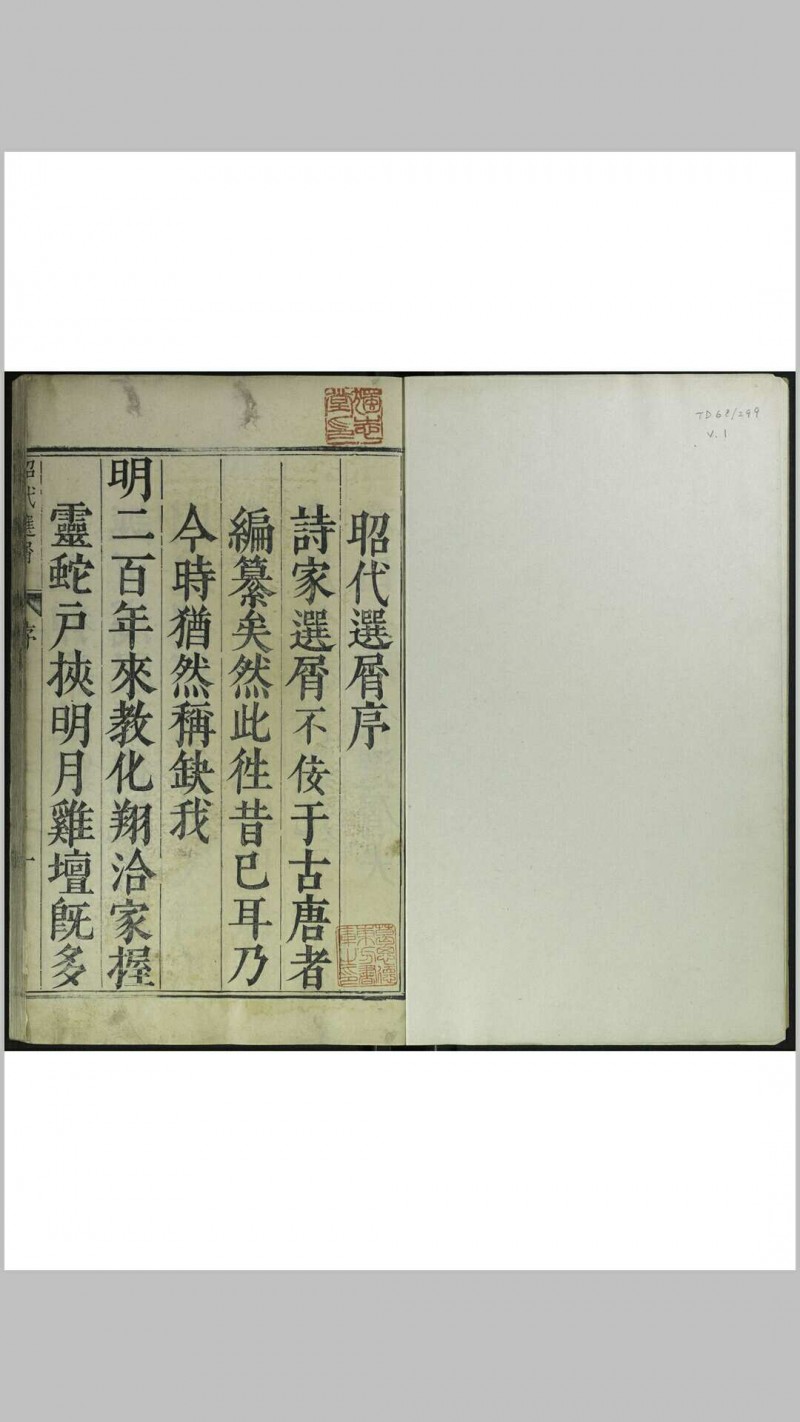 TD68/299
V.1
昭代選屑序
詩家選屑不佞于古唐者
編纂矣然此徃昔已耳乃
今時猶然稱缺我
明二百年來教化翔洽家握
靈蛇戸挾明月雞壇旣多
昭代選屑
序
一